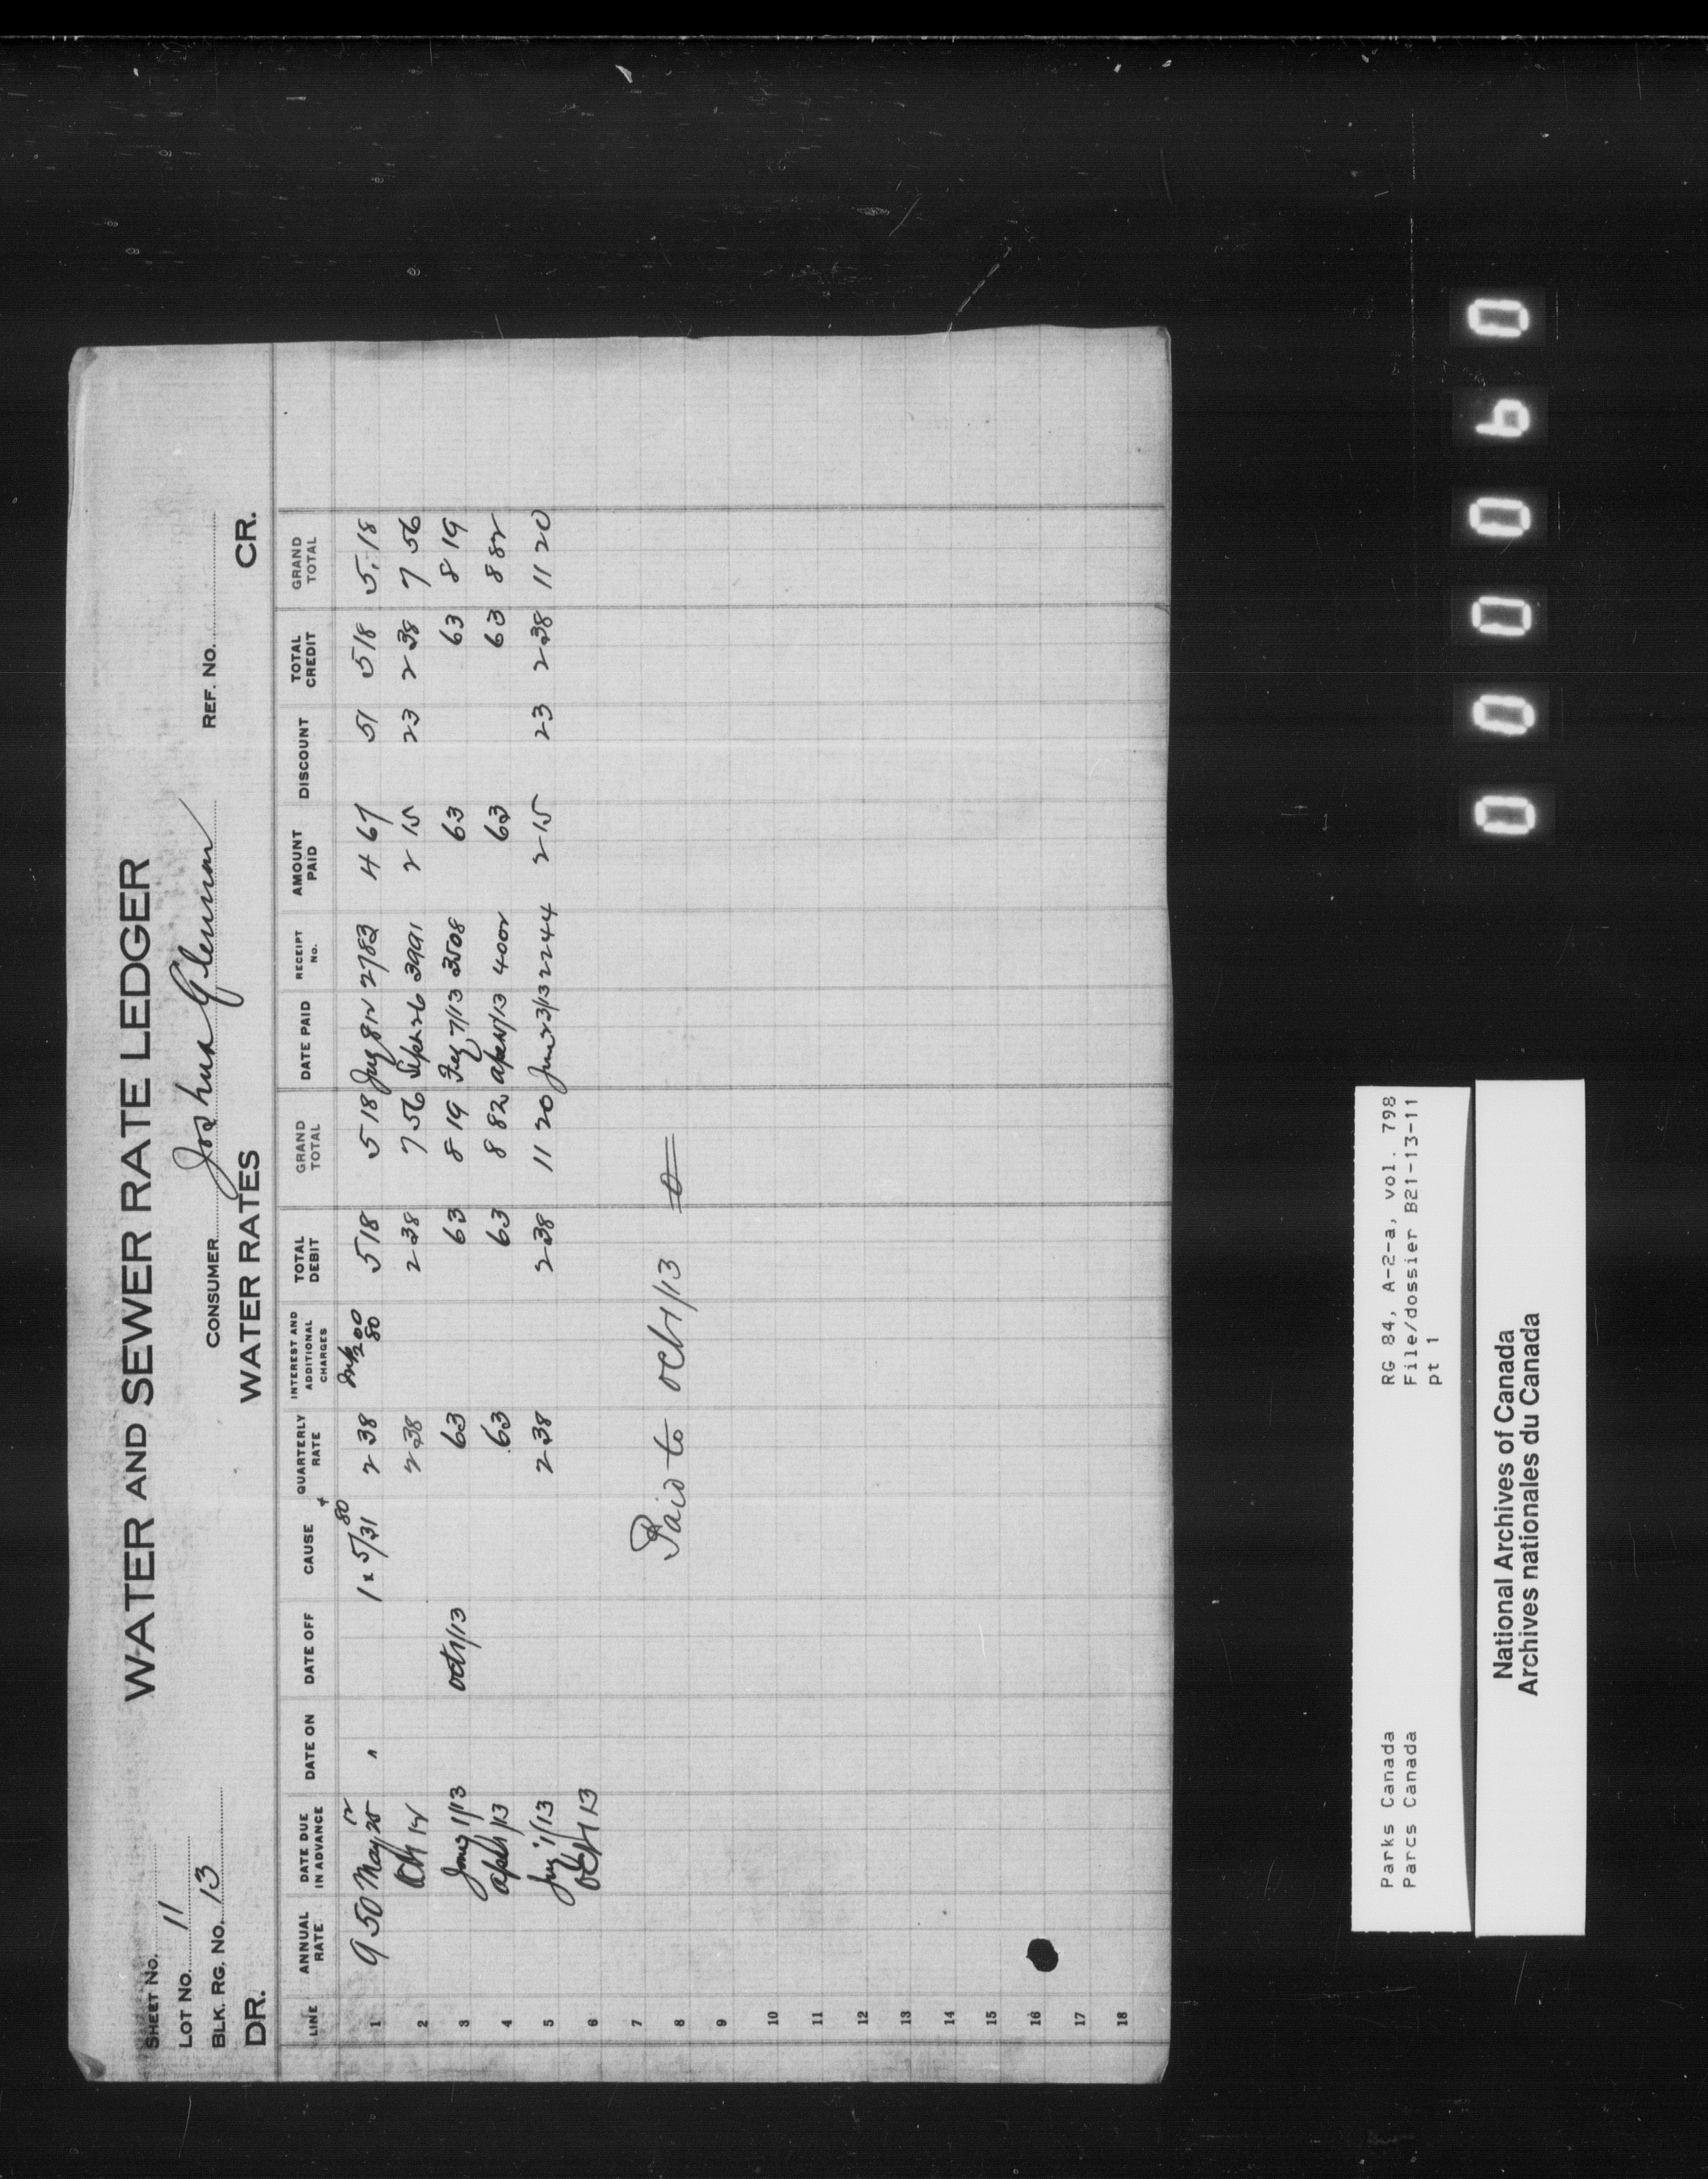 WATER AND SEWER RATE LEDGER
SHEET No.
LOT No. 11
BLK. RG. No. 13
CONSUMER Joshua Glennon
REF. No.
DR. WATER RATES CR.
LINE ANNUAL RATE DATE DUE IN ADVANCE DATE ON DATE OFF CAUSE QUARTERLY RATE INTEREST AND ADDITIONAL CHARGES TOTAL DEBIT GRAND TOTAL DATE PAID RECEIPT No. AMOUNT PAID DISCOUNT TOTAL CREDIT GRAND TOTAL
1 9 50 May 25 12 " 1 x 5/31 80 2 38 2 00 80 5 18 5 18 2783 4 67 51 5 18 5.18
2 Oct 1 12 2 38 2 38 7 56 Sept 26 3991 2 15 23 2 38 7 56
3 Jany 1/13 Oct 1/13 63 63 8 19 Feb 7/13 3508 63 63 8 19
4 Apl 1/13 63 63 8 82 4002 63 63 8 82
5 1/13 2 38 2 38 11 20 June 23/13 2244 2 15 23 2 38 11 20
6 Oct 1 13
7
8 Paid to Oct 1/13 0
9
10
11
12
13
14
15
16
17
18
Parks Canada RG 84, A-2-a, vol. 798
Parcs Canada File/dossier B21-13-11
pt 1
National Archives of Canada
Archives nationales du Canada
000060